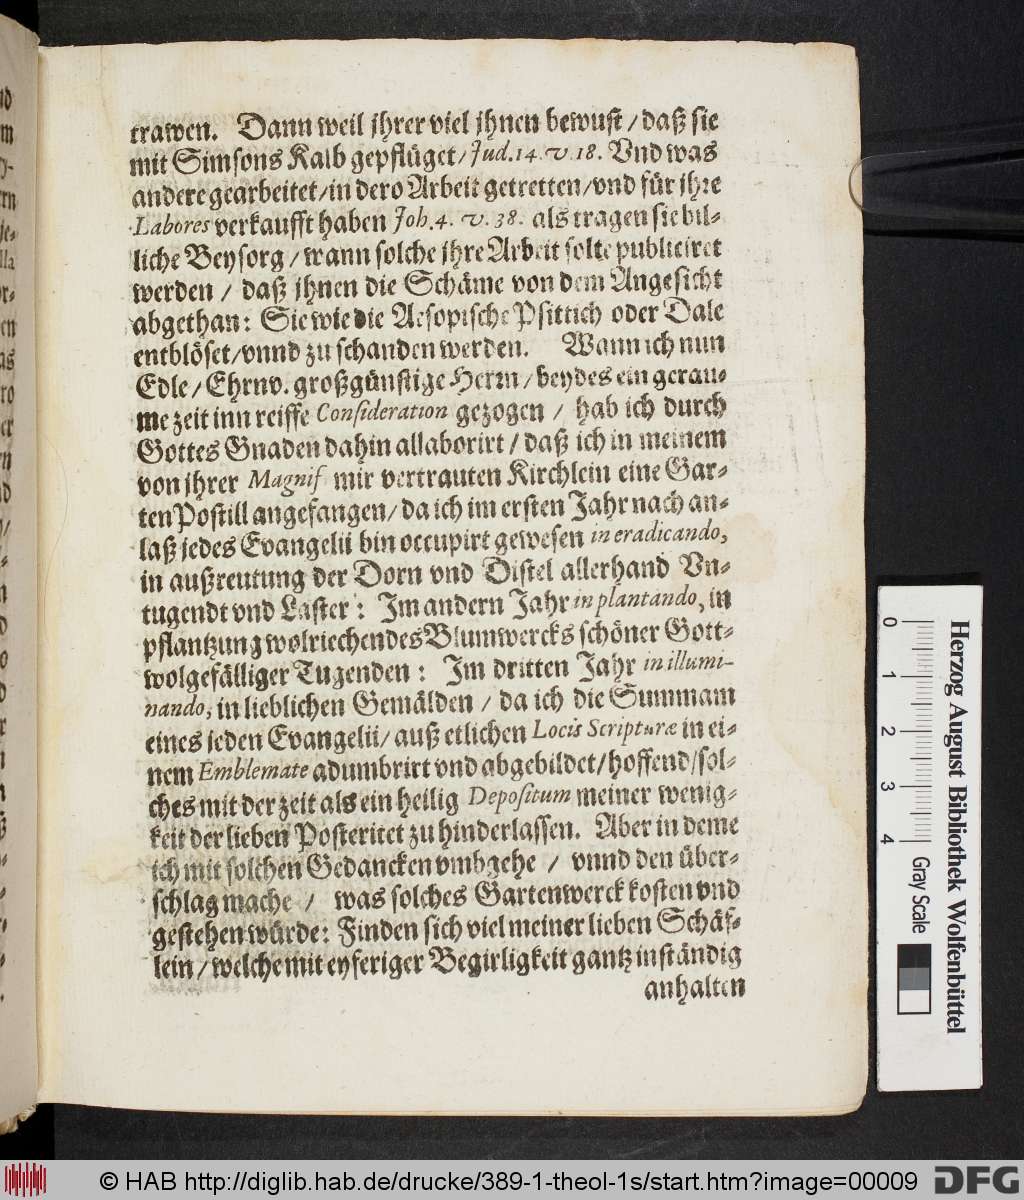 trawen. Dann weil jhrer viel jhnen bewust / daß sie
mit Simsons Kalb gepflüget / Jud. 14. v. 18. Vnd was
andere gearbeitet / in dero Arbeit getretten / vnd für jhre
Labores verkaufft haben Joh. 4. v. 38. als tragen sie bil-
liche Beysorg / wann solche jhre Arbeit solte publiciret
werden / daß jhnen die Schäme von dem Angesicht
abgethan: Sie wie die Aesopische Psittich oder Dale
entblöset / vnnd zu schanden werden. Wann ich nun
Edle / Ehrnv. großgünstige Herrn / beydes ein gerau-
me zeit inn reiffe Consideration gezogen / hab ich durch
Gottes Gnaden dahin allaborirt / daß ich in meinem
von jhrer Magnif mir vertrauten Kirchlein eine Gar-
ten Postill angefangen / da ich im ersten Jahr nach an-
laß jedes Evangelii bin occupirt gewesen in eradicando,
in außreutung der Dorn vnd Distel allerhand Vn-
tugendt vnd Laster: Im andern Jahr in plantando, in
pflantzung wolriechendes Blumwercks schöner Gott-
wolgefälliger Tugenden: Im dritten Jahr in illumi-
nando, in lieblichen Gemälden / da ich die Summam
eines jeden Evangelii / auß etlichen Locis Scripturæ in ei-
nem Emblemate adumbrirt vnd abgebildet / hoffend / sol-
ches mit der zeit als ein heilig Depositum meiner wenig-
keit der lieben Posteritet zu hinderlassen. Aber in deme
ich mit solchen Gedancken vmbgehe / vnnd den über-
schlag mache / was solches Gartenwerck kosten vnd
gestehen würde: Finden sich viel meiner lieben Schäf-
lein / welche mit eyferiger Begirligkeit gantz inständig
anhalten
0 1 2 3 4
Gray Scale
Herzog August Bibliothek Wolfenbüttel
© HAB http://diglib.hab.de/drucke/389-1-theol-1s/start.htm?image=00009
DFG